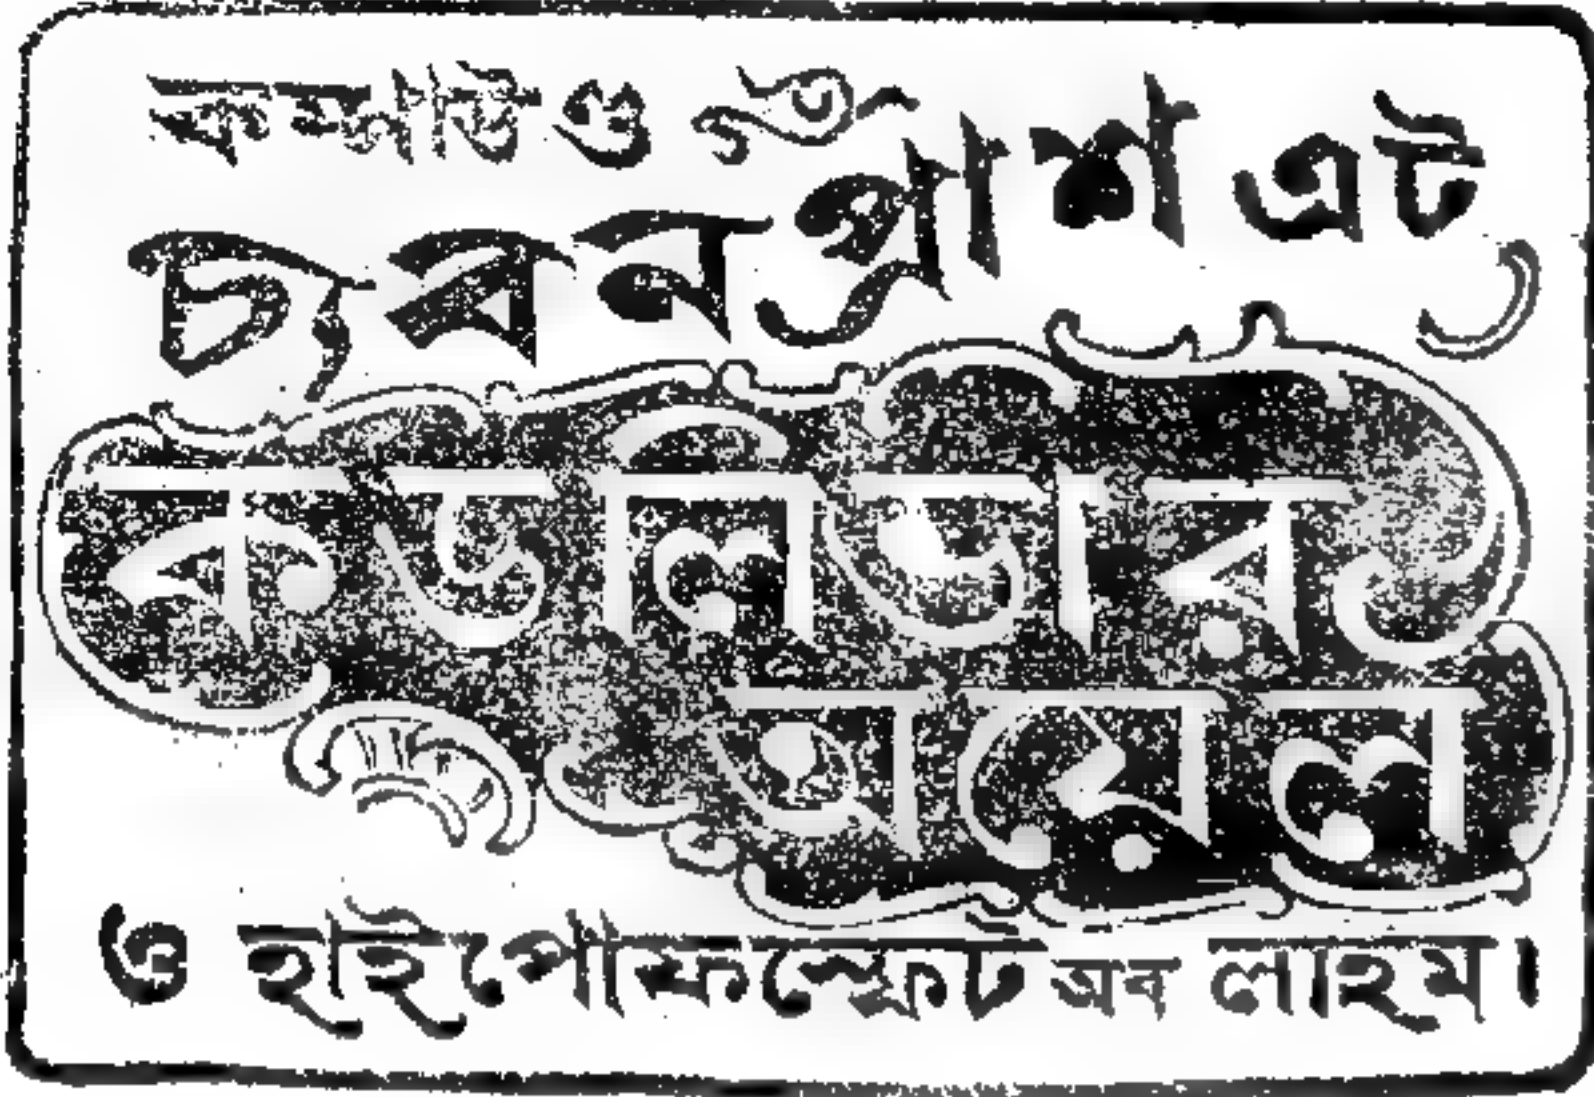 কম্পাউণ্ড
চ্যবনপ্রাশ এট্
কডলিভার
অয়েল
ও হাইপোফস্ফেট অব লাইম।